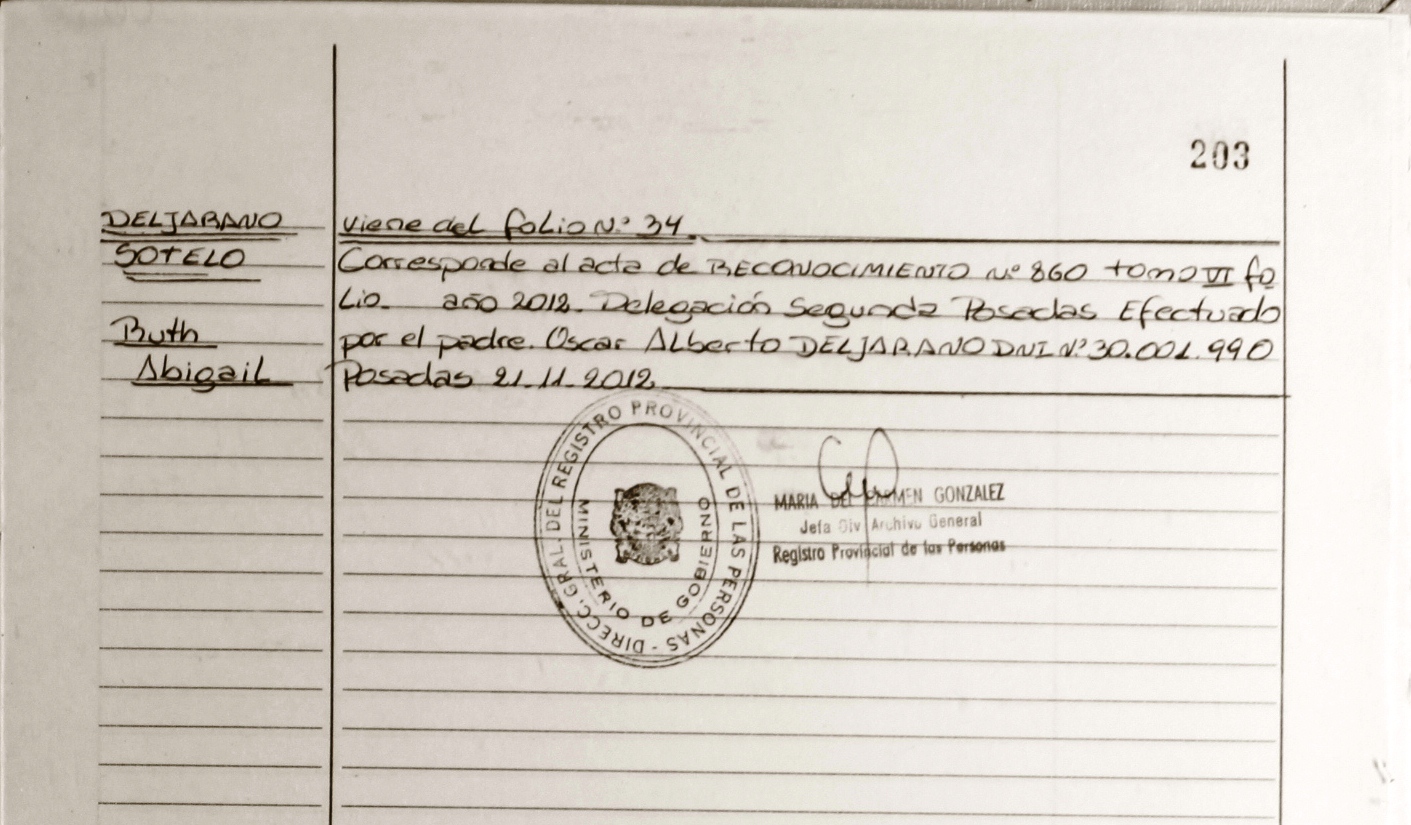 203
DELJARANO
SOTELO
Ruth
Abigail
viene del folio N° 34
Corresponde al acta de RECONOCIMIENTO N° 860 tomo VI fo
lio. año 2012. Delegación Segunda Posadas Efectuado
por el padre. Oscar Alberto DELJARANO DNI N° 30.001.990
Posadas 21.11.2012
DIRECC. GRAL. DEL REGISTRO PROVINCIAL DE LAS PERSONAS -
MINISTERIO DE GOBIERNO
MARIA DEL CARMEN GONZALEZ
Jefa Div Archivo General
Registro Provincial de las Personas